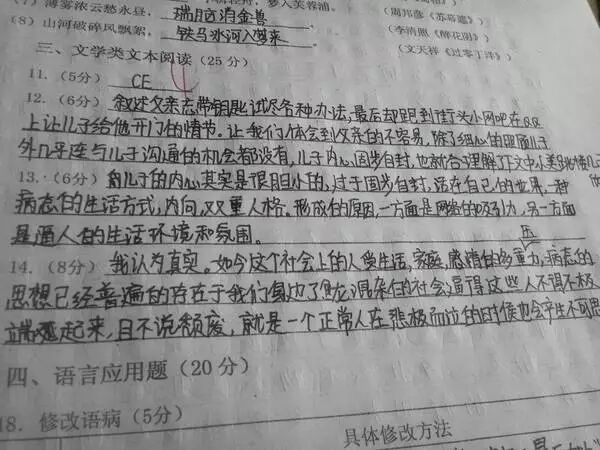 (7) 薄雾浓云愁永昼, 瑞脑消金兽。 (李清照《醉花阴》)
(8) 山河破碎风飘絮, 铁马冰河入梦来。 (文天祥《过零丁洋》)
三、文学类文本阅读 (25 分)
11. (5分) CE
12. (6分) 叙述父亲忘带钥匙试尽各种办法,最后却跑到街头小网吧在QQ
上让儿子给他开门的情节。让我们体会到父亲的不容易,除了细心的照顾儿子
外几乎连与儿子沟通的机会都没有,儿子内心固步自封,也
13. (6分) 儿子的内心其实是很胆小的,过于固步自封,活在自己的世界,一种
病态的生活方式,内向,双重人格。形成的原因,一方面是网络的吸引力,另一方面
是逼人的生活环境和氛围。
14. (8分) 我认为真实。如今这个社会上的人受生活,家庭,感情的多重压力,病态的
思想已经普遍的存在于我们身边了
端起来,且不说颓废,就是一个正常人在悲极而泣的时候也会产生不可思
四、语言应用题 (20 分)
18. 修改语病 (5分)
具体修改方法